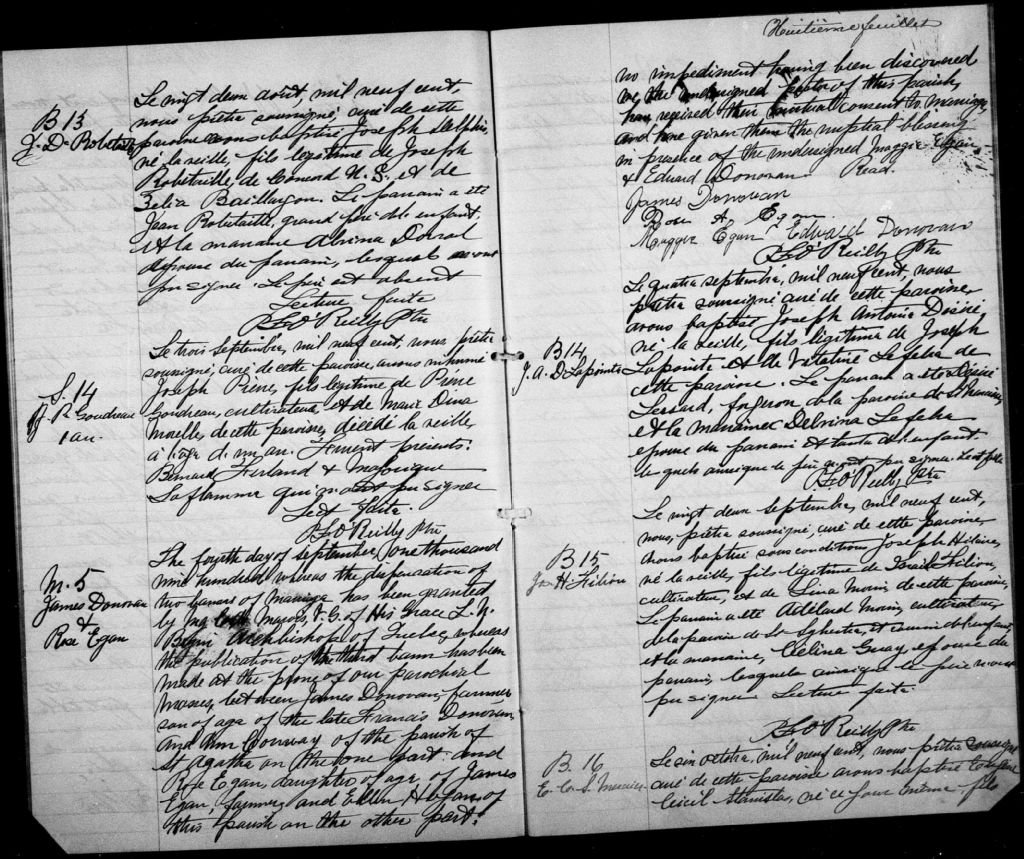 B 13
J. D Robitaille
Le vingt deux août, mil neuf cent,
nous prêtre soussigné, curé de cette
paroisse avons baptisé Joseph Delphis,
né la veille, fils legitime de Joseph
Robitaille, de Concord N. S. et de
Zelia Baillargeon. Le parrain a été
Jean Robitaille, grand père de l'enfant,
et la marraine Albina Doival
épouse du parrain, lesquels
pu signer. Le père est absent
Lecture faite
O'Reilly Ptre
S. 14
J. P. Goudreau
1 an.
Le trois septembre, mil neuf cent, nous prêtre
soussigné, curé de cette paroisse, avons inhumé
Joseph Pierre, fils legitime de Pierre
Goudreau, cultivateur, et de Marie Dina
Morelle, de cette paroisse, décédé la veille
à l'age d'un an. Furent présents:
Bernard Ferland &
Laflamme qui n'ont pu signer
Lect faite.
O'Reilly Ptre
M. 5
James Donovan
&
Rose Egan
The fourth day of September, one thousand
nine hundred, whereas the dispensation of
two banns of marriage has been granted
by Marois, V. G. of His Grace L. N.
Begin Archbishop of Quebec, whereas
the publication of the third bann has been
made at the prone of our parochial
Masses, between James Donovan farmer
son of age of the late Francis Donovan
and Ann Conway of the parish of
St Agatha on the one part and
Rose Egan, daughter of age of James
Egan, farmer, and Ellen Hogan of
this parish on the other part:
Huitième feuillet
no impediment having been discovered
we, the undersigned pastor of this parish,
have received their mutual consent to marriage,
and have given them the nuptial blessing
in presence of the undersigned Maggie Egan
& Edward Donovan Read.
James Donovan
Rose A. Egan
Maggie Egan Edward Donovan
O'Reilly Ptre
B 14
J. A. D Lapointe
Le quatre septembre, mil neuf cent, nous
prêtre soussigné curé de cette paroisse,
avons baptisé Joseph Antoine Désiré
né la veille, fils légitime de Joseph
Lapointe et de Vitaline Lefebre de
cette paroisse. Le parrain a été Désiré
Lessard, forgeron de la paroisse de St
et la marraine Delvina Lefebre
épouse du parrain et tante de l'enfant.
lesquels ainsi que le père n'ont pu signer. Lect faite
O'Reilly Ptre
B 15
Jos H. Filion
Le vingt deux septembre, mil neuf cent,
nous, prêtre soussigné, curé de cette paroisse,
avons baptisé sous conditions Joseph Hilaire,
né la veille, fils légitime de Israël Filion,
cultivateur, et de Lina Morin de cette paroisse,
Le parrain a été Adélard Morin, cultivateur,
de la paroisse de St Sylvestre, et cousin de l'enfant
et la marraine, Célina Guay, épouse du
parrain, lesquels ainsi que le père n'ont
pu signer Lecture faite.
O'Reilly Ptre
B. 16
E. C. S. Mercier
Le six octobre, mil neuf cent, nous, prêtre soussigné
curé de cette paroisse avons baptisé
Cécil Stanislas, né ce jour même fils